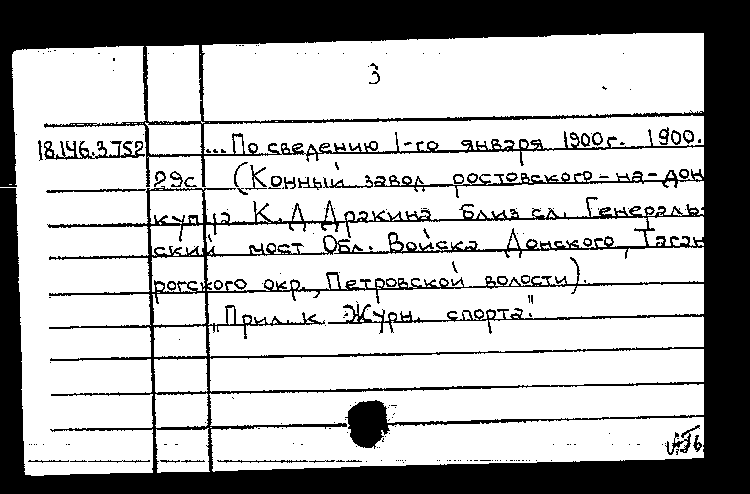 3
18.146.3.752 ...По сведению 1-го января 1900г. 1900.
29с (Конный завод ростовского-на-дон
купца К.Д.Дракина близ сл. Генераль-
ский мост Обл. Войска Донского, Таган
рогского окр., Петровской волости).
"Прил. к Журн. спорта."